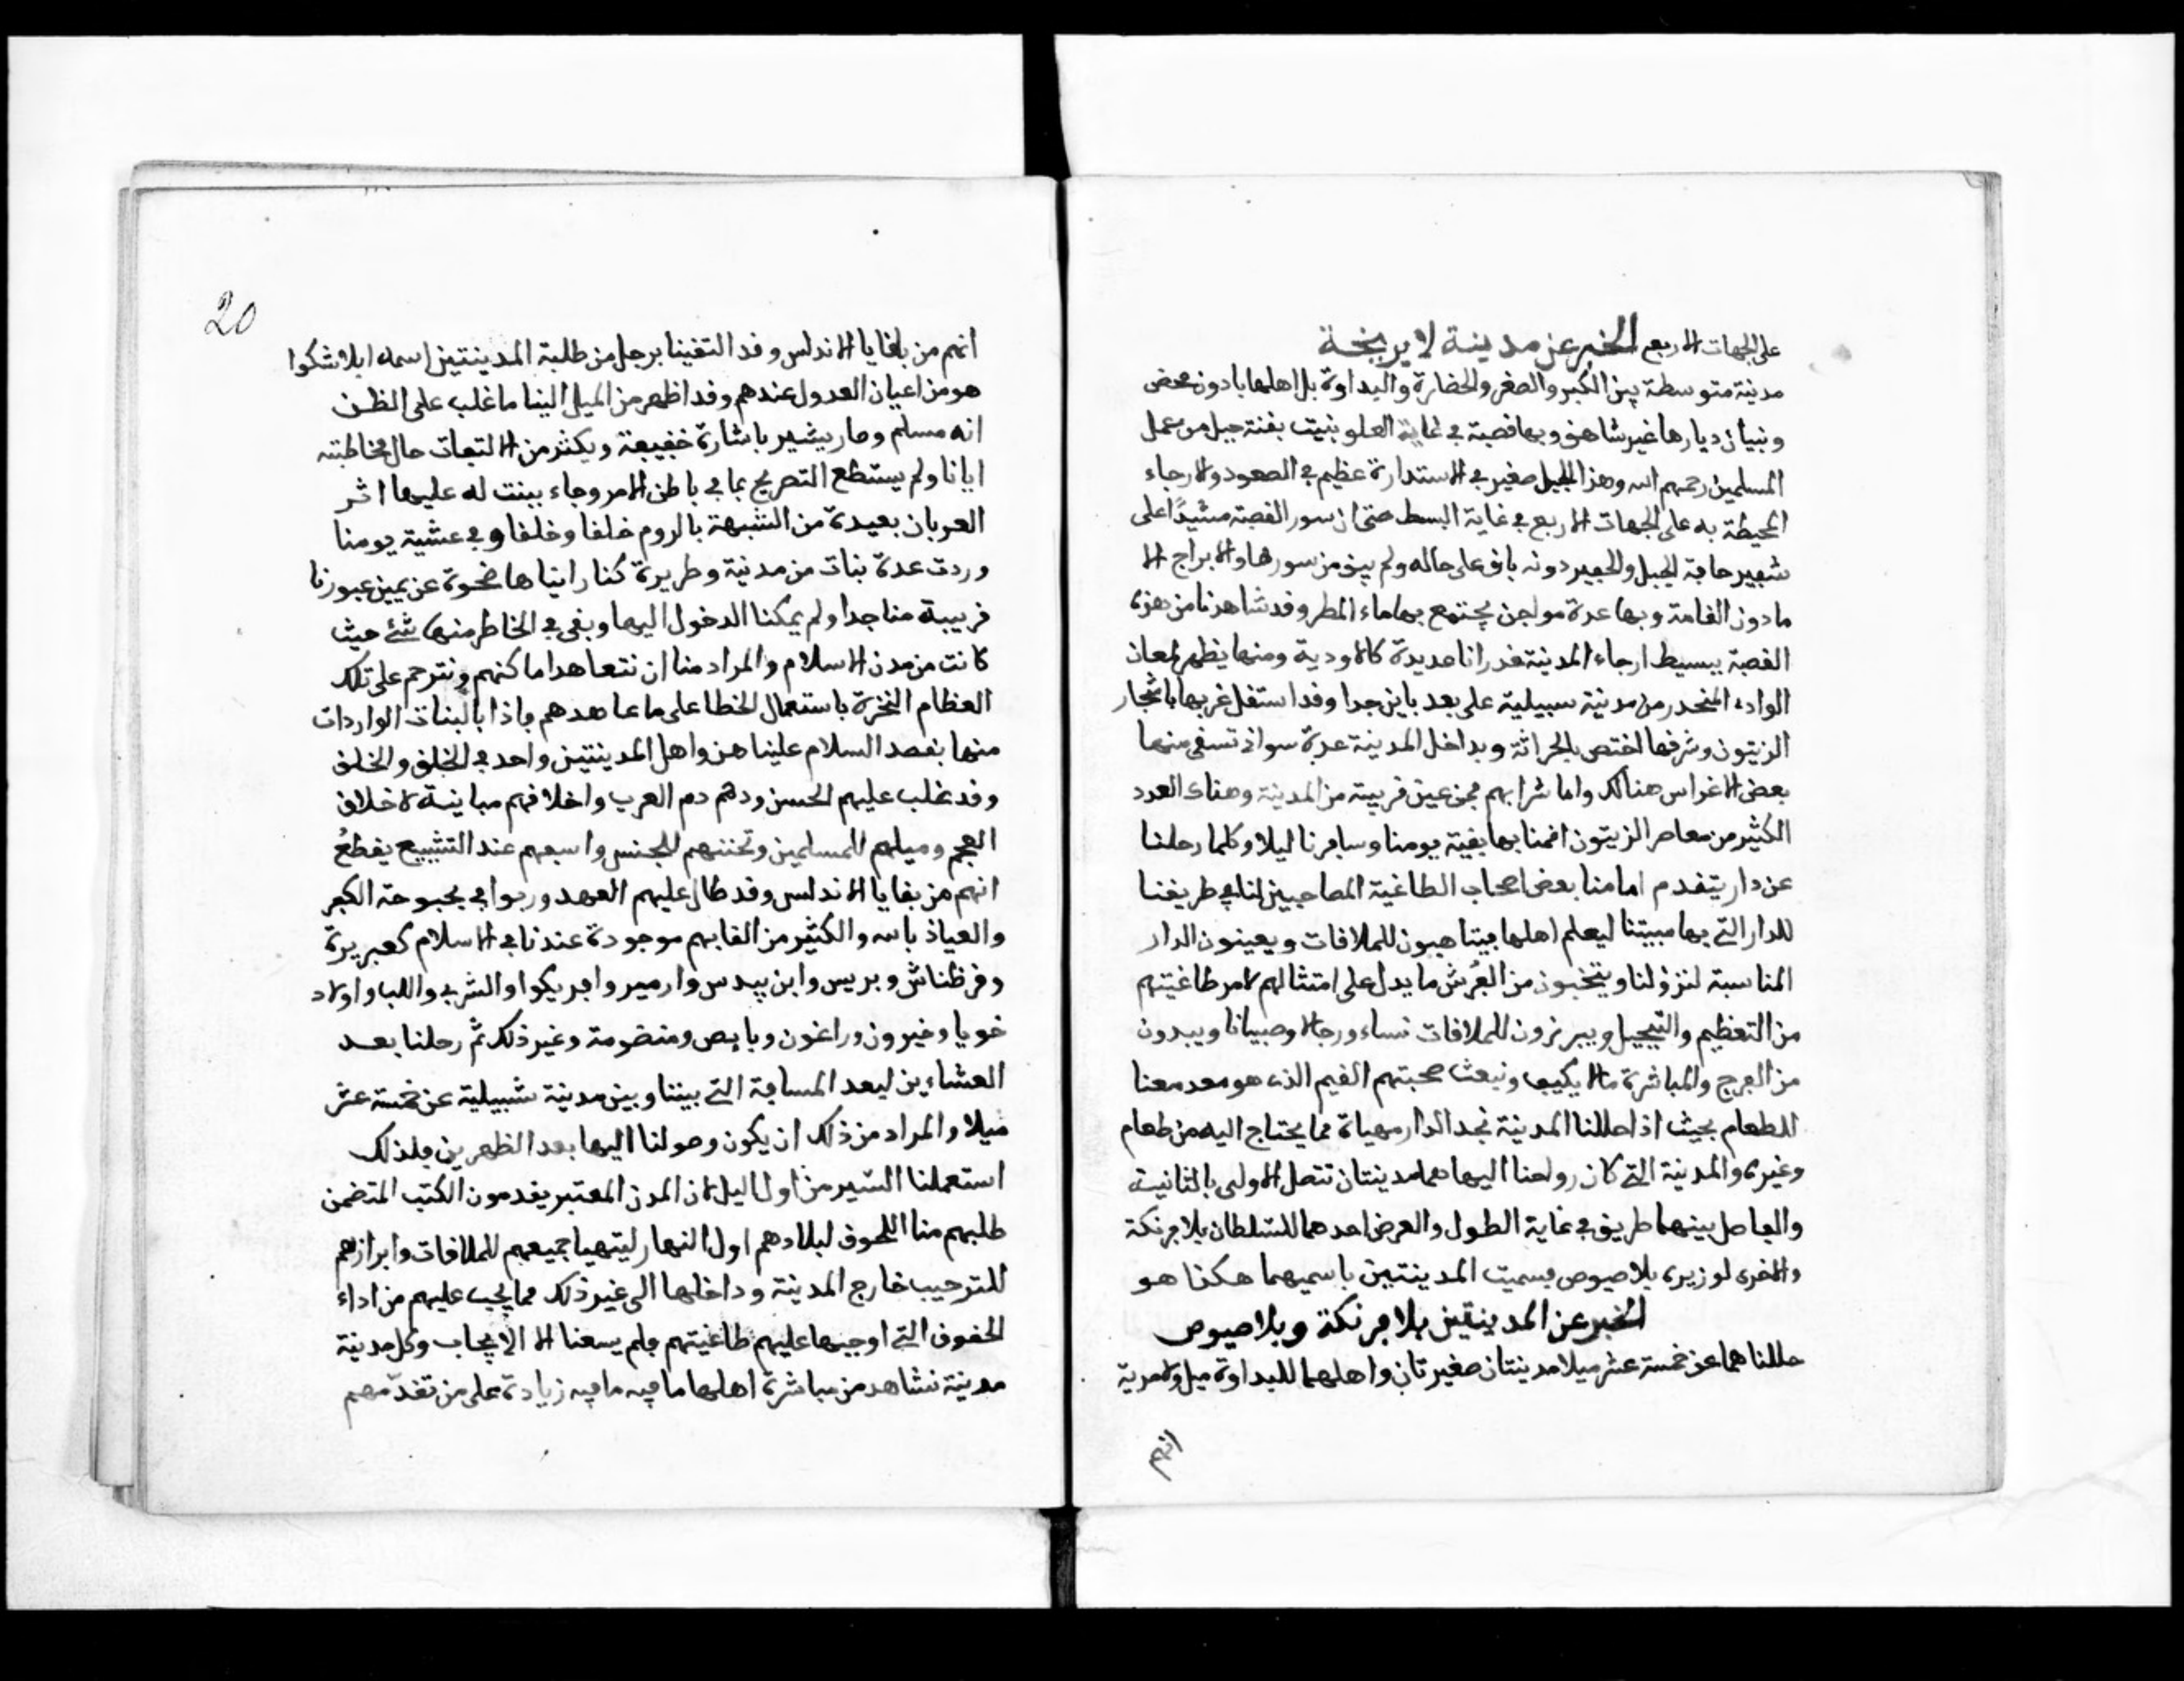 على الجهات الاربع الخبر عن مدينة لابريخة
مدينة متوسطة بين الكبر والصغر والحضارة والبداوة بل اهلها بادون محض
وبنيان ديارها غير شاهق وبها قصبة في غاية العلو بنيت بقنة جبل من عمل
المسلمين رحمهم الله وهذا الجبل صغير في الاستدارة عظيم في الصعود والارجاء
المحيطة به على الجهات الاربع في غاية البسط حتى ان سور القصبة مشيدًا على
شفير حافة الجبل والحفير دونه باق على حاله ولم يبق من سورها والابراج الا
ما دون القامة وبها عدة مواجن يجتمع بها ماء المطر وقد شاهدنا من هذه
القصبة ببسيط ارجاء المدينة غدرانا عديدة كالاودية ومنها يظهر لمعان
الوادي المنحدر من مدينة سبيلية على بعد باين جدا وقد استقل غربها باشجار
الزيتون وشرقها اختص بالحراثة وبداخل المدينة عدة سواق تسقى منها
بعض الاغراس هنالك واما شرابهم فمن عين قريبة من المدينة وهناك العدد
الكثير من معاصر الزيتون اقمنا بها بقية يومنا وسافرنا ليلا وكلما رحلنا
عن دار يتقدم امامنا بعض اصحاب الطاغية المصاحبين لنا في طريقنا
للدار التي بها مبيتنا ليعلم اهلها فيتاهبون للملاقات ويعينون الدار
المناسبة لنزولنا وينتخبون من الفُرش ما يدل على امتثالهم لامر طاغيتهم
من التعظيم والتبجيل ويبرزون للملاقات نساء ورجالا وصبيانا ويبدون
من الفرح والمباشرة ما لا يكيف ونبعث صحبتهم القيم الذي هو معد معنا
للطعام بحيث اذا حللنا المدينة نجد الدار مهياة مما يحتاج اليه من طعام
وغيره والمدينة التي كان رواحنا اليها هما مدينتان تتصل الاولى بالثانية
والفاصل بينهما طريق في غاية الطول والعرض احدهما للسلطان بلافرنكة
والاخرى لوزيره بلاصيوص فسميت المدينتين باسميهما هكذا هو
الخبر عن المدينتين بلافرنكة وبلاصيوص
حللناهما عن خمسة عشر ميلا مدينتان صغيرتان واهلهما للبداوة ميل ولامرية
انهم
20
انهم من بقايا الاندلس وقد التقينا برجل من طلبة المدينتين اسمه ابلاشكوا
هو من اعيان العدول عندهم وقد اظهر من الميل الينا ما غلب على الظن
انه مسلم وصار يشير باشارة خفيفة ويكثر من الالتفات حال مخاطبته
ايانا ولم يستطع التصريح بما في باطن الامر وجاء ببنت له عليها اثر
العربان بعيدة من الشبهة بالروم خلقا وخلقا وفي عشية يومنا
وردت عدة بنات من مدينة وطريرة كنا رايناها ضحوة عن يمين عبورنا
قريبة منا جدا ولم يمكنا الدخول اليها وبقى في الخاطر منها شئ حيث
كانت من مدن الاسلام والمراد منا ان نتعاهد اماكنهم ونترحم على تلك
العظام النخرة باستعمال الخطا على ما عاهدهم فاذا بالبنات الواردات
منها بقصد السلام علينا هن واهل المدينتين واحد في الخلق والخلق
وقد غلب عليهم الحسن ودمهم دم العرب واخلاقهم مباينة لاخلاق
العجم وميلهم للمسلمين وتحننهم للجنس واسفهم عند التشييع يقطعُ
انهم من بقايا الاندلس وقد طال عليهم العهد وربوا في بحبوحة الكفر
والعياذ بالله والكثير من القابهم موجودة عندنا في الاسلام كعبريرة
وفرظناش وبريس وابن يبدس وارمير وافريكوا والشرف واللب واولاد
خويا وخيرون وراغون وبابص ومنضومة وغير ذلك ثم رحلنا بعد
العشاءين لبعد المسافة التي بيننا وبين مدينة شبيلية عن خمسة عشر
ميلا والمراد من ذلك ان يكون وصولنا اليها بعد الظهرين فلذلك
استعملنا السير من اول اليل لان المدن المعتبر يقدمون الكتب المتضمن
طلبهم منا اللحوق لبلادهم اول النهار ليتهيا جميعهم للملاقات وابرازهم
للترحيب خارج المدينة وداخلها الى غير ذلك مما يجب عليهم من اداء
الحقوق التي اوجبها عليهم طاغيتهم فلم يسعنا الا الايجاب وكل مدينة
مدينة نشاهد من مباشرة اهلها ما فيه ما فيه زيادة على من تقدّمهم